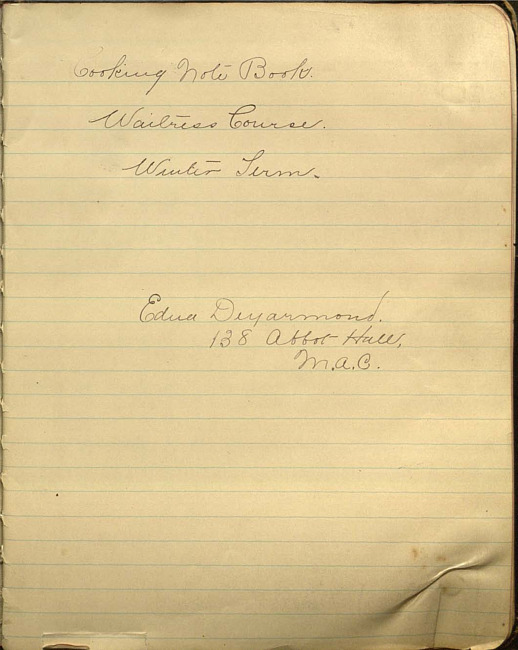 Cooking Note Book.
Waitress Course.
Winter Term.
Edna Deyarmond.
138 Abbot Hall,
M.A.C.